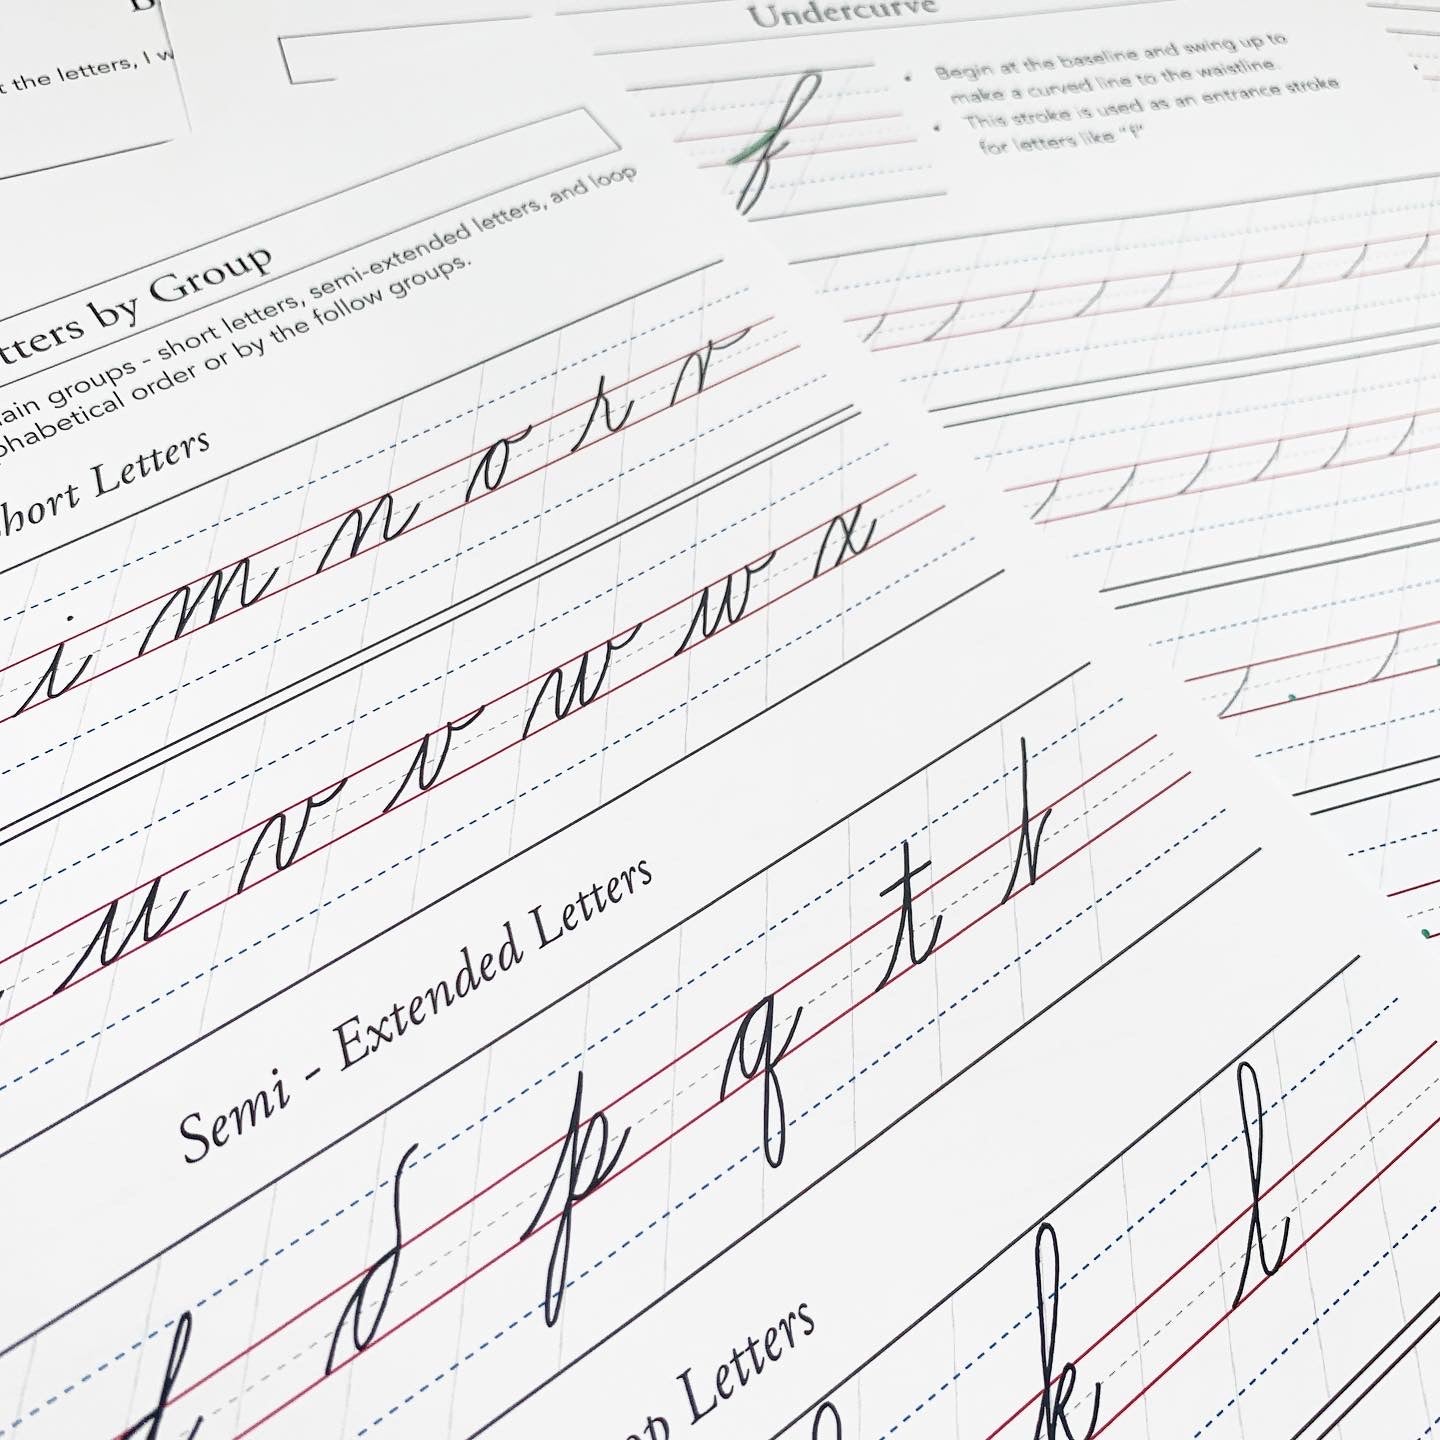 t the letters, I w
tters by Group
ain groups - short letters, semi-extended letters, and loop
phabetical order or by the follow groups.
hort Letters
i m n o r r
u v v w w x
Semi - Extended Letters
d d p q t t
op Letters
k l
Undercurve
• Begin at the baseline and swing up to
make a curved line to the waistline.
• This stroke is used as an entrance stroke
for letters like "f"
f